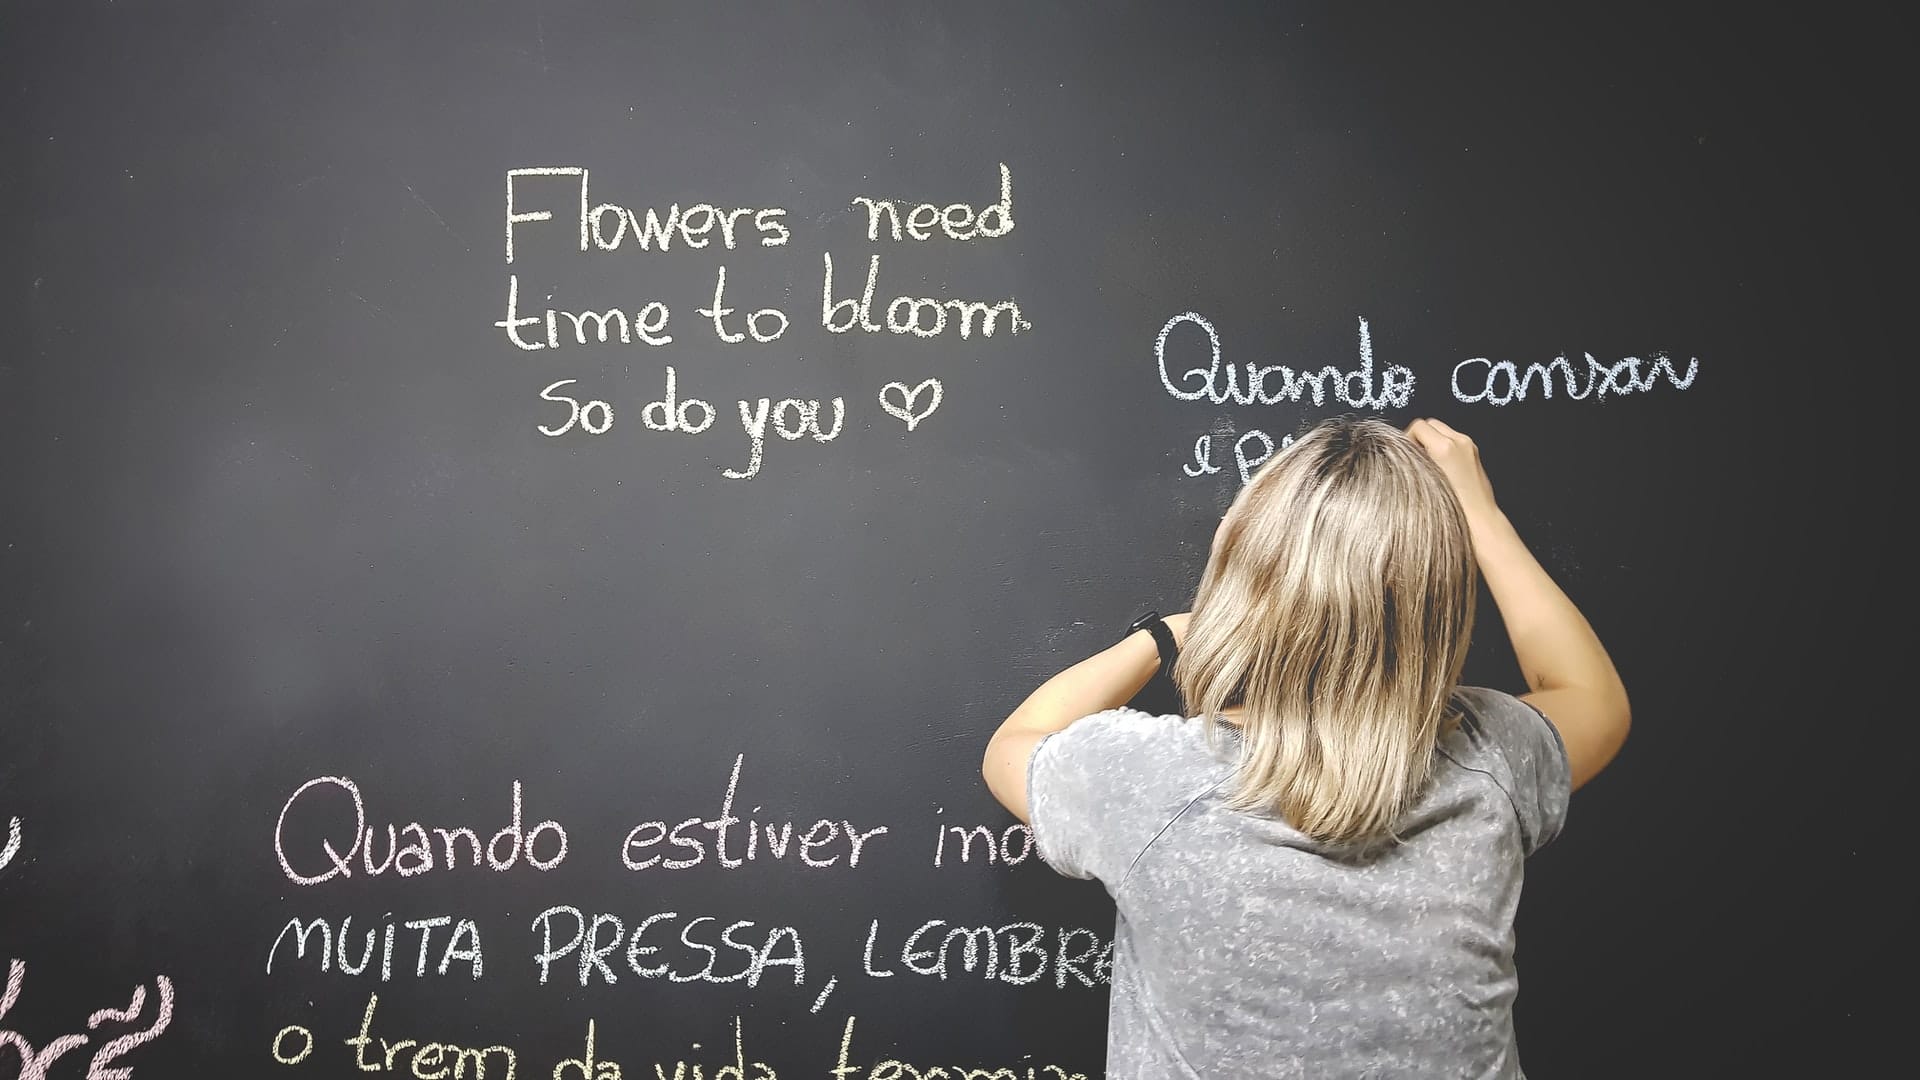 Flowers need
time to bloom
So do you
Quando cansar
e
Quando estiver
MUITA PRESSA, LEMBRE
o trem da vida